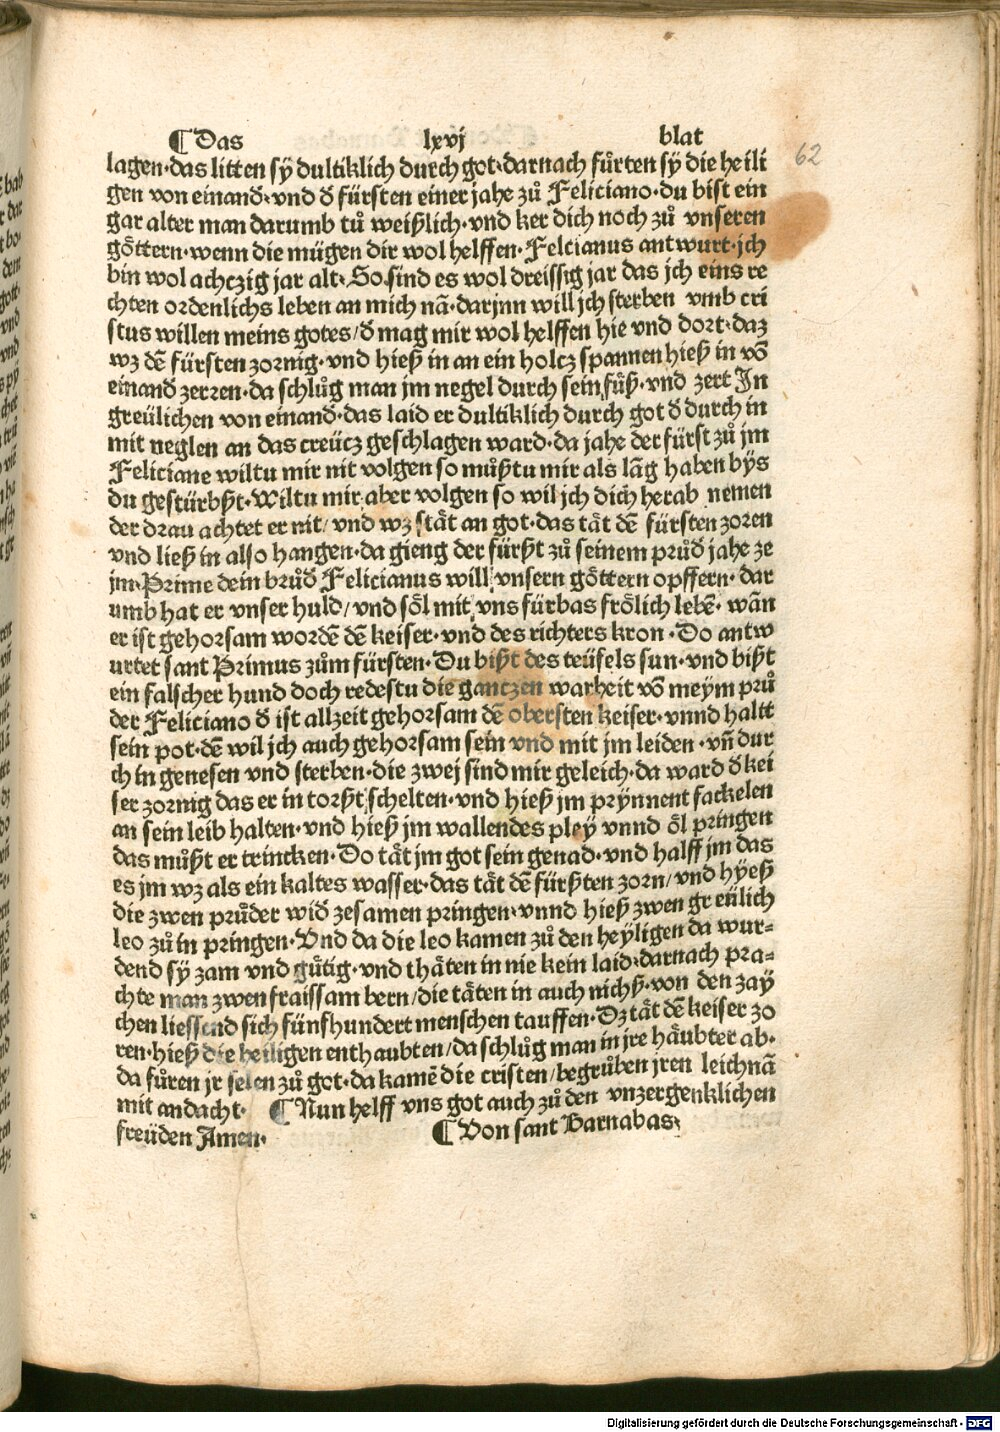 ¶ Das lxvj blat
62
lagen·das litten sÿ dultiklich durch got·darnach fůrten sÿ die heili
gen von einand̄·vnd d̄ fürsten einer jahe zů Feliciano·du bist ein
gar alter man darumb tů weißlich·vnd ker dich noch zů vnseren
göttern·wenn die mügen dir wol helffen·Felcianus antwurt·jch
bin wol achczig jar alt·So sind es wol dreissig jar das jch eins re
chten ordenlichs leben an mich nā·darjnn will jch sterben vmb cri
stus willen meins gotes/d̄ mag mir wol helffen hie vnd dort·daz
wz dē fürsten zornig·vnd hieß in an ein holcz spannen hieß in vō
einand̄ zerren·da schlůg man jm negel durch sein füß·vnd zert In
greülichen von einand̄·das laid er dultiklich durch got d̄ durch in
mit neglen an das creücz geschlagen ward·da jahe der fürst zů jm
Feliciane wiltu mir nit volgen so můßtu mir als lāg haben bÿs
du gestürbßt·Wiltu mir aber volgen so wil jch dich herab nemen
der drau achtet er nit/vnd wz stät an got·das tät dē fürsten zoren
vnd ließ in also hangen·da gieng der fürßt zů seinem průd̄ jahe ze
jm·Prime dein brůd̄ Felicianus will vnsern göttern opffern·dar
umb hat er vnser huld/vnd söl mit vns fürbas frölich lebē·wān
er ist gehorsam wordē dē keiser·vnd des richters kron·Do antw
urtet sant Primus zům fürsten·Du bißt des teüfels sun·vnd bißt
ein falscher hund doch redestu die ganczen warheit vō meym prů
der Feliciano d̄ ist allzeit gehorsam dē obersten keiser·vnnd haltt
sein pot·dē wil jch auch gehorsam sein vnd mit jm leiden·vn̄ dur
ch in genesen vnd sterben·die zwej sind mir geleich·da ward d̄ kei
ser zornig das er in torßt schelten·vnd hieß jm prÿnnent fackelen
an sein leib halten·vnd hieß jm wallendes pleÿ vnnd öl pringen
das můßt er trincken·Do tät jm got sein genad·vnd halff jm das
es jm wz als ein kaltes wasser·das tät dē fürßten zorn/vnd hÿeß
die zwen průder wid̄ zesamen pringen·vnnd hieß zwen greülich
leo zů in pringen·Vnd da die leo kamen zů den heÿligen da wur=
dend sÿ zam vnd gütig·vnd thäten in nie kein laid·darnach pra=
chte man zwen fraissam bern/die täten in auch nichß·von den zaÿ
chen liessend sich fünfhundert menschen tauffen·Dz tät dē keiser zo
ren·hieß die heiligen enthaubten/da schlůg man in jre häubter ab·
da fůren jr selen zů got·da kamē die cristen/begrůben jren leichnā
mit andacht· ¶ Nun helff vns got auch zů den vnzergenklichen
freüden Amen· ¶ Von sant Barnabas·
Digitalisierung gefördert durch die Deutsche Forschungsgemeinschaft - DFG